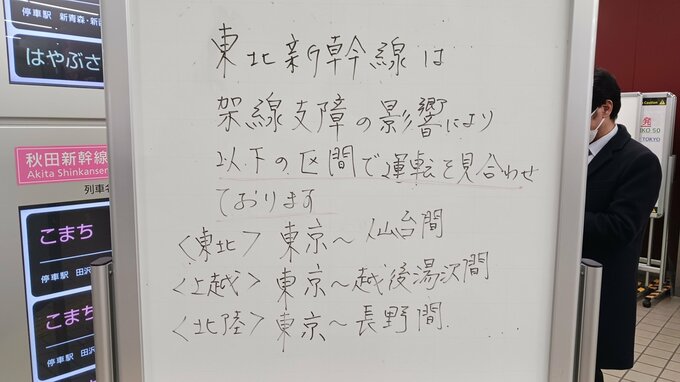 停車駅 新青森・新函
はやぶさ
秋田新幹線
Akita Shinkansen
列車名
こまち
停車駅 田沢
こまち
停車駅 田沢
東北新幹線は
架線支障の影響により
以下の区間で運転を見合わせ
ております
<東北> 東京~仙台間
<上越> 東京~越後湯沢間
<北陸> 東京~長野間
Caution
発
TOKYO